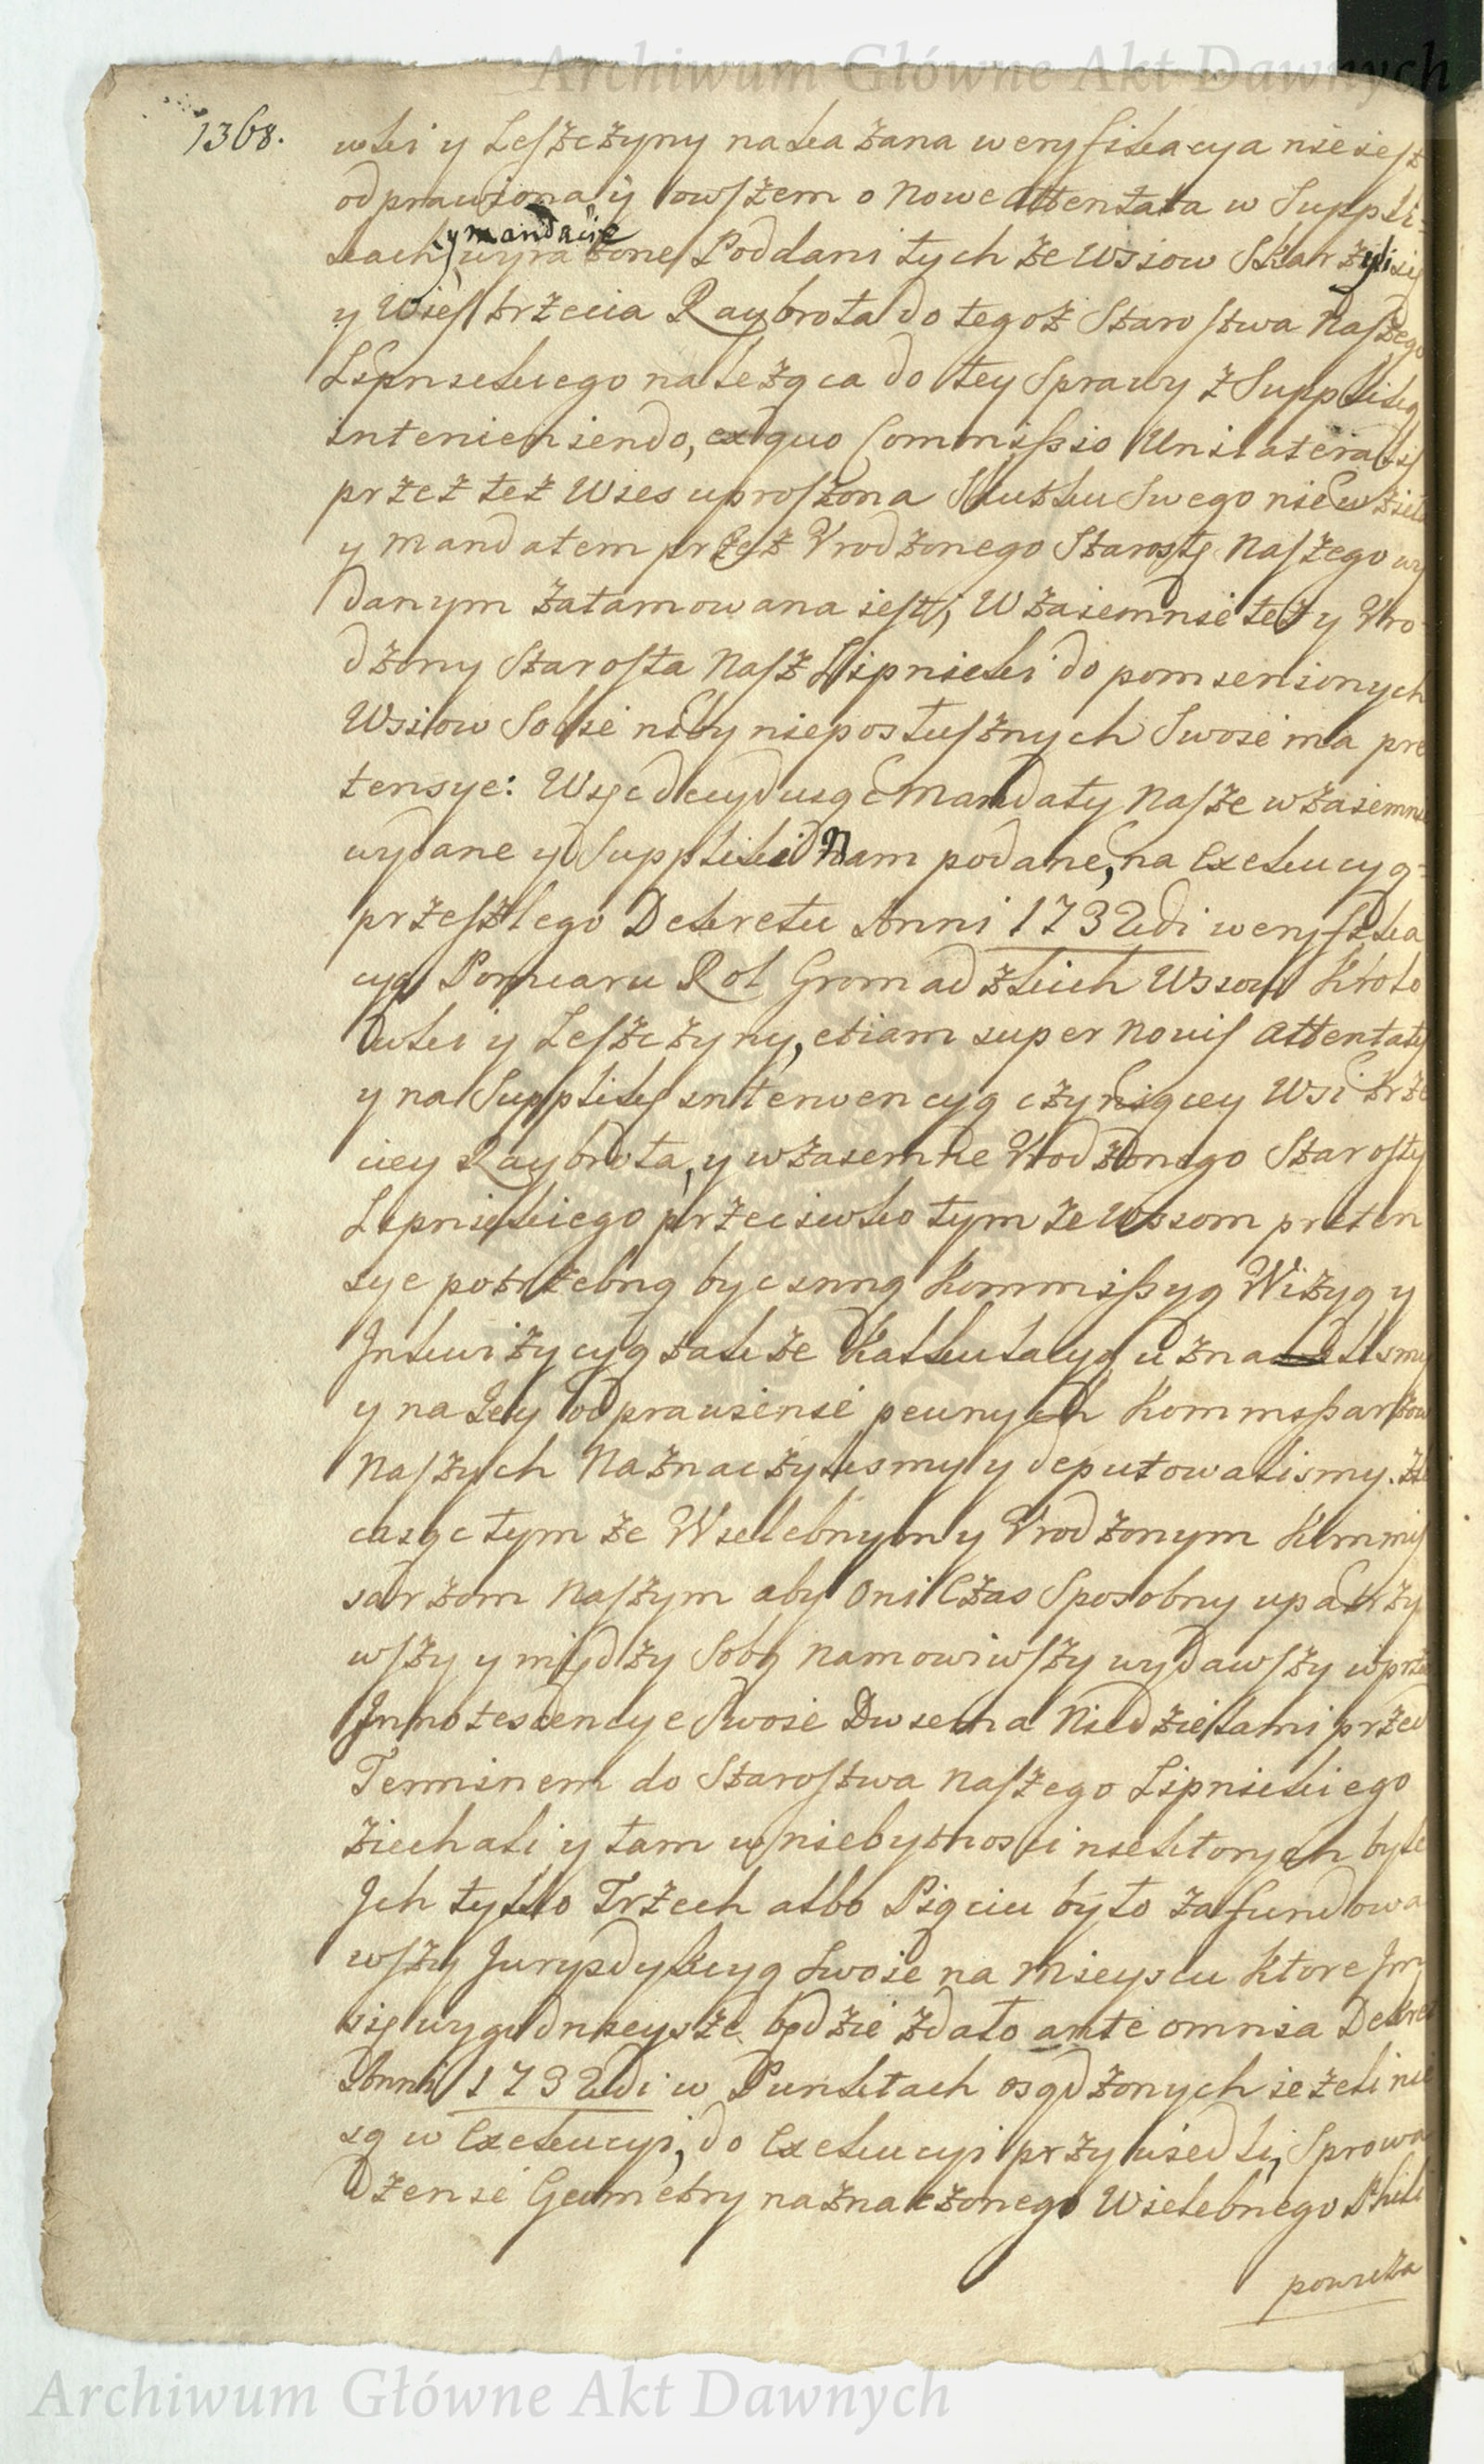 Archiwum Główne Akt Dawnych
1368.
wki y Leszczyny nakazana weryfikacya nie iest
odprawiona y owszem o nowe attentata w Suppli-
y mandacie
kach wyrażone Poddani tych że Wsiow Skarżyli się
y Wieś trzecia Raybrota do tegoż Starostwa Naszego
Lipnickiego należąca do tey Sprawy z Suppliką
interveniendo, ex quo Commissio Unilateralis
przez też Wieś uproszona Skutku Swego nie wzieła
y mandatem przez Vrodzonego Starostę Naszego wy
danym zatamowana iest; Wzaiemnie też y Vro
dzony Starosta Nasz Lipnicki do pomienionych
Wsiow Sobie niby nieposłusznych Swoie ma pre
tensye: Więc decyduiąc Mandaty Nasze wzaiemnie
wydane y Suppliki Nam podane, na Exekucyą
przeszłego Dekretu Anni 1732di weryfika
cyą Pomiaru Rol Gromadzkich Wsiow Krolo
wki y Leszczyny, etiam super novis attentatis
y na Supplikę interwencyą czyniącey Wsi trze
ciey Raybrota, y wzaiemne Vrodzonego Starosty
Lipnickiego przeciwko tym że Wsiom preten
sye potrzebną być inną Kommissyą Wizyą y
Inkwizycyą także Kalkulacyą uznaliśmy
y na Iey odprawienie pewnych Kommissarzow
Naszych Naznaczyliśmy y deputowaliśmy. Zle
caiąc tym że Wielebnym y Vrodzonym Kommis
sarzom Naszym aby oni Czas Sposobny upatrzy
wszy y między Sobą namowiwszy wydawszy wprzod
Innotescencye Swoie Dwiema Niedzielami przed
Terminem do Starostwa Naszego Lipnickiego
ziechali y tam w niebytności niektorych byle
Ich tylko Trzech albo Pięciu było zafundowa
wszy Juryzdykcyą swoie na Mieyscu ktore Im
się wygodnieysze będzie zdało ante omnia Dekret
Anni 1732di w Punktach osądzonych ieżeli nie
są w Exekucyi, do Exekucyi przywiedli, Sprowa
dzenie Geometry naznaczonego Wielebnego Phili
powicza
Archiwum Główne Akt Dawnych